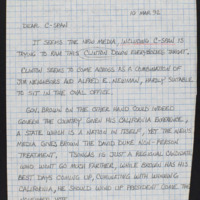 10 MAR 92
DEAR C-SPAN
IT SEEMS THE NEW MEDIA, INCLUDING C-SPAN IS
TRYING TO RAM THIS CLINTON DOWN EVERYBODIES THROAT.
CLINTON SEEMS TO COME ACROSS AS A COMBINATION OF
JIM NEIGHBORS AND ALFRED E. NEWMAN, HARDLY SUITABLE
TO SIT IN THE OVAL OFFICE.
GOV. BROWN ON THE OTHER HAND COULD INDEED
GOVERN THE COUNTRY GIVEN HIS CALIFORNIA EXPERIENCE,
A STATE WHICH IS A NATION IN ITSELF, YET THE NEWS
MEDIA GIVES BROWN THE DAVID DUKE NON-PERSON
TREATMENT. TSONGAS IS JUST A REGIONAL CANDIDATE
WHO WONT GO MUCH FARTHER, WHILE BROWN HAS HIS
BEST DAYS COMING UP, CULMINATING WITH WINNING
CALIFORNIA, HE SHOULD WIND UP PRESIDENT COME THE
NOVEMBER VOTE.